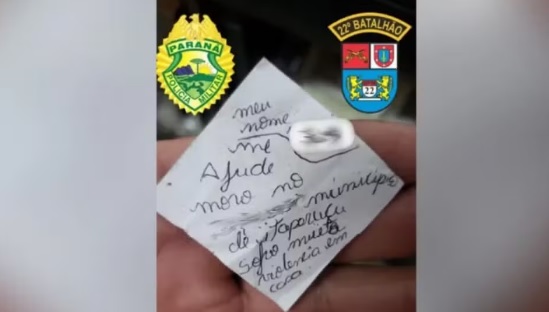 PARANÁ
POLÍCIA MILITAR
22º BATALHÃO
22
meu
nome
me
Ajude
moro no
município
de itaperuçu
sofro muita
violencia em
casa.